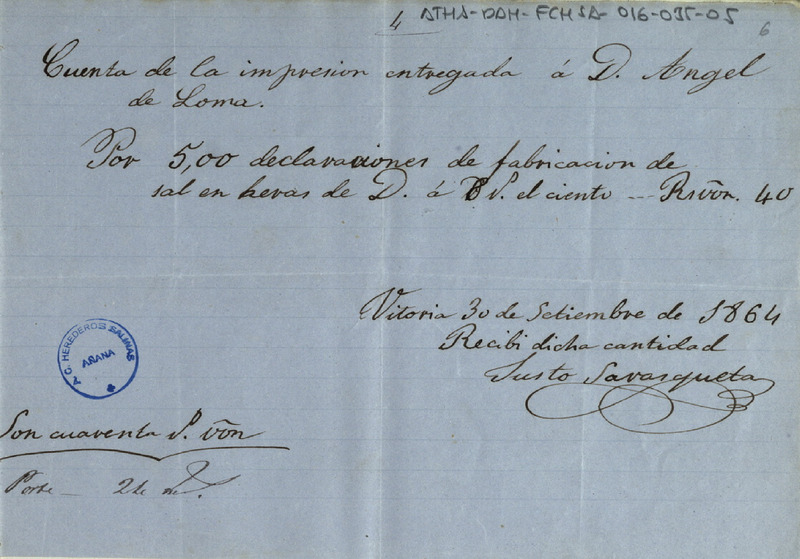 4 ATHA-DAH-FCHSA-016-035-05
6
Cuenta de la impresion entregada á D. Angel
de Loma.
Por 5,00 declaraciones de fabricacion de
sal en heras de D. á 8 r. el ciento --- Rs von. 40
Vitoria 30 de Setiembre de 1864
Recibi dicha cantidad
Justo Sarasqueta
T. G. HEREDEROS SALINAS
AÑANA
Son cuarenta r. von
Porte — 2